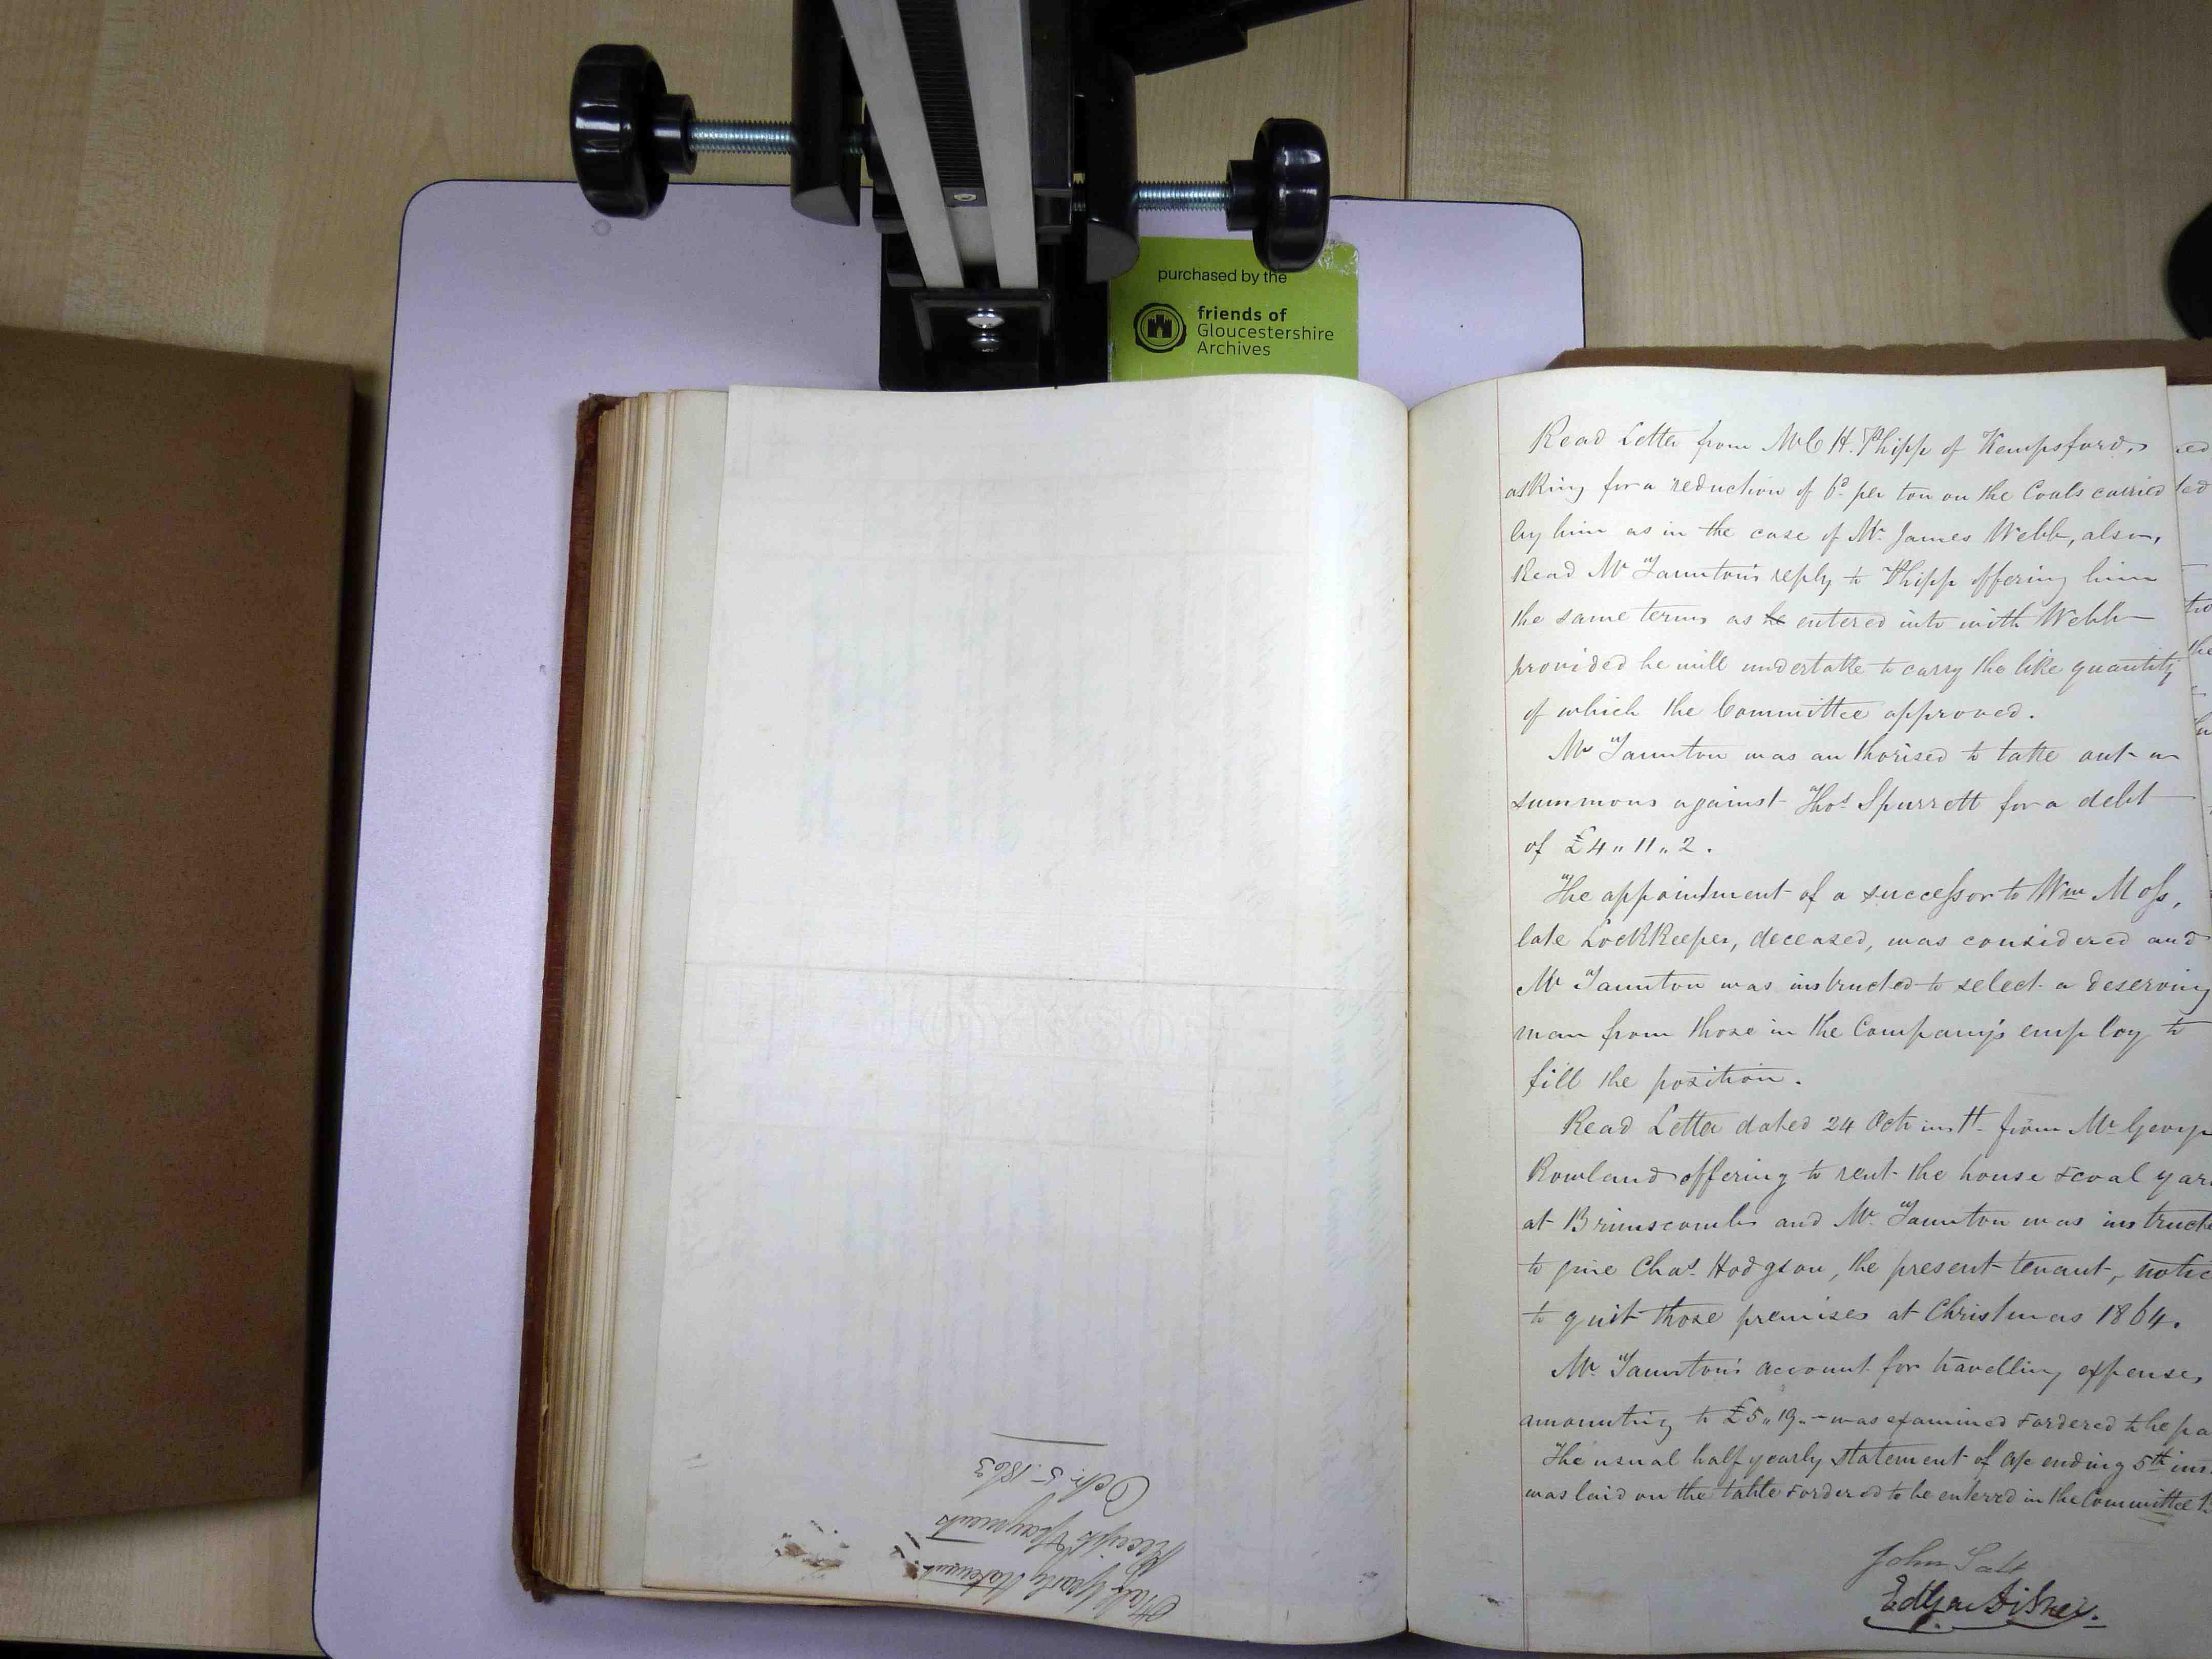 purchased by the
friends of
Gloucestershire
Archives
Half Yearly Statement
Receipts & Payments
Octr. 5. 1863
Read Letter from Mr C H. Phipp of Kempsford,
asking for a reduction of 6d. per ton on the Coals carried
by him as in the case of Mr. James Webb, also,
Read Mr Taunton's reply to Phipp offering him
the same terms as he entered into with Webb
provided he will undertake to carry the like quantity
of which the Committee approved.
Mr Taunton was authorised to take out a
summons against Thos. Spurrett for a debt
of £4 " 11 " 2.
The appointment of a successor to Wm Moss,
late LockKeeper, deceased, was considered and
Mr Taunton was instructed to select a deserving
man from those in the Company's employ to
fill the position.
Read Letter dated 24 Oct inst. from Mr George
Rowland offering to rent the house & coal yar
at Brimscomb and Mr. Taunton was instructe
to give Chas. Hodgson, the present tenant, notic
to quit those premises at Christmas 1864.
Mr. Taunton's account for travelling expenses
amounting to £5 " 19 " - was examined & ordered to be pa
The usual half yearly statement of a/c ending 5th ins
was laid on the table & ordered to be entered in the Committee B
John Salt
Edgar Disney.
ed
ted
to
the